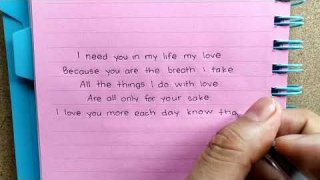 I need you in my life my love
Because you are the breath i take
All the things I do with love
Are all only for your sake
I love you more each day know tha